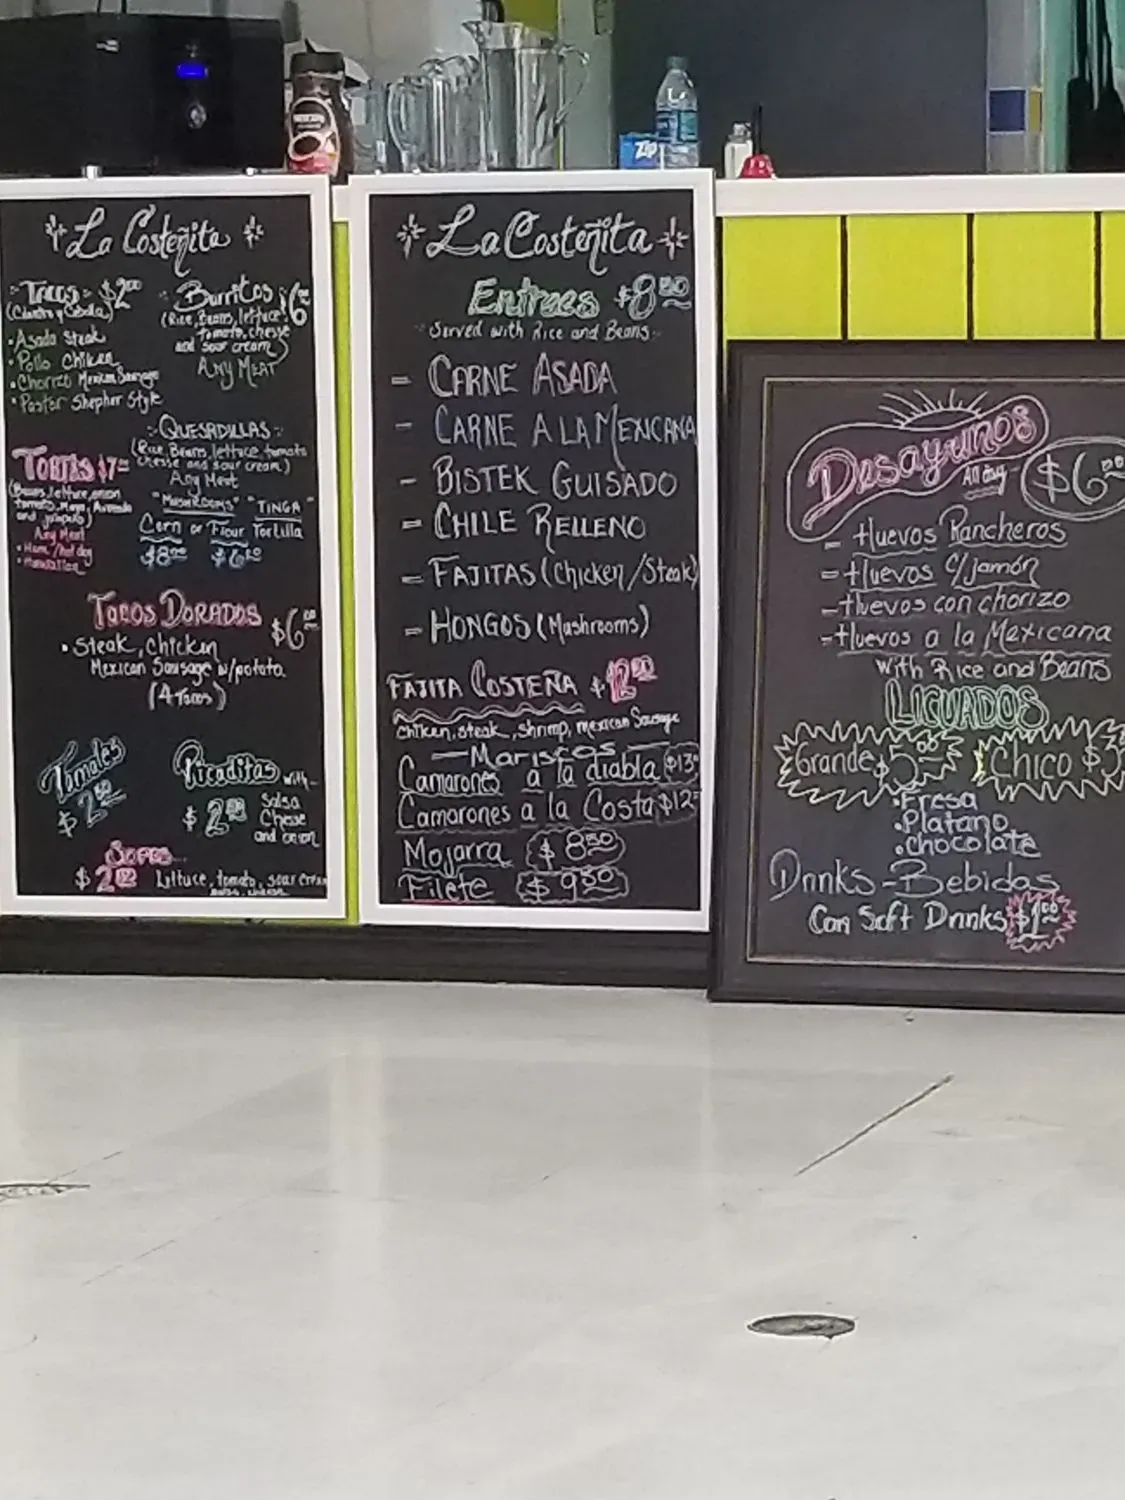 NESCAFÉ
Zip
La Costeñita
Tacos $2.00
(Cilantro y Cebolla)
• Asada Steak
• Pollo Chiken
• Chorizo Mexican Sausage
• Pastor Shepher Style
Burritos $6
(Rice, Beans, lettuce
tomato, chesse
and sour cream)
Any Meat
Tortas $7
(Beans, lettuce, onion
tomato, Mayo, Avocado
and jalapeño)
Any Meat
• Ham/hot dog
• Hawaiian
Quesadillas
(Rice, Beans, lettuce, tomato
chesse and sour cream)
Any Meat
"Mushrooms" "Tinga"
Corn or Flour Tortilla
$8.00 $6.50
Tacos Dorados $6.00
• Steak, Chicken
Mexican Sausage w/potato
(4 Tacos)
Tamales
$2.50
Picaditas with
$2.00 Salsa
Chesse
and onion
Sopes
$2.00 Lettuce, tomato, sour cream
La Costeñita
Entrees $8.50
Served with Rice and Beans
- Carne Asada
- Carne a la Mexicana
- Bistek Guisado
- Chile Relleno
- Fajitas (Chicken/Steak)
- Hongos (Mushrooms)
Fajita Costeña $12.50
chiken, steak, shrimp, mexican Sausage
- Mariscos -
Camarones a la diabla $13
Camarones a la Costa $12
Mojarra $8.50
Filete $9.50
Desayunos
All day $6.00
- Huevos Rancheros
- Huevos c/jamón
- Huevos con chorizo
- Huevos a la Mexicana
with Rice and Beans
Licuados
Grande $5.00 Chico $3
• Fresa
• Platano
• Chocolate
Drinks - Bebidas
Can Soft Drinks $1.00